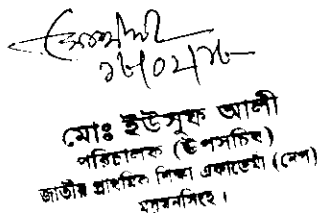 ১৮/০২/১৮
মোঃ ইউসুফ আলী
পরিচালক (উপসচিব)
জাতীয় প্রাথমিক শিক্ষা একাডেমী (নেপ)
ময়মনসিংহ।